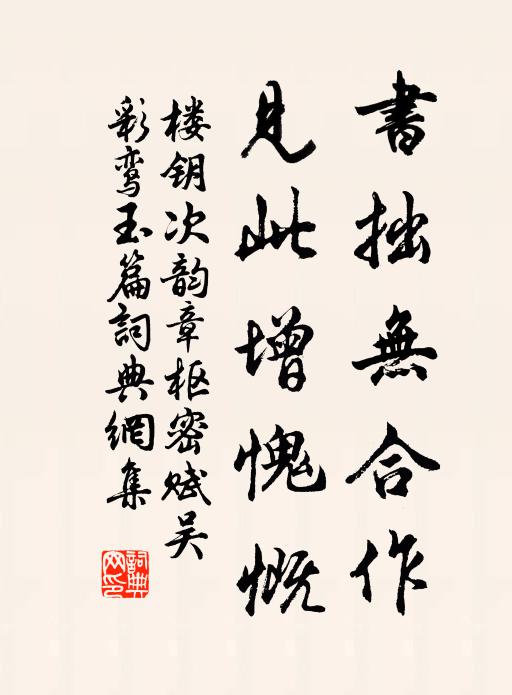 書拙無合作
見此增愧慨
楼钥次韵章枢密赋吴
彩鸾玉篇詞典網集
詞典
网印